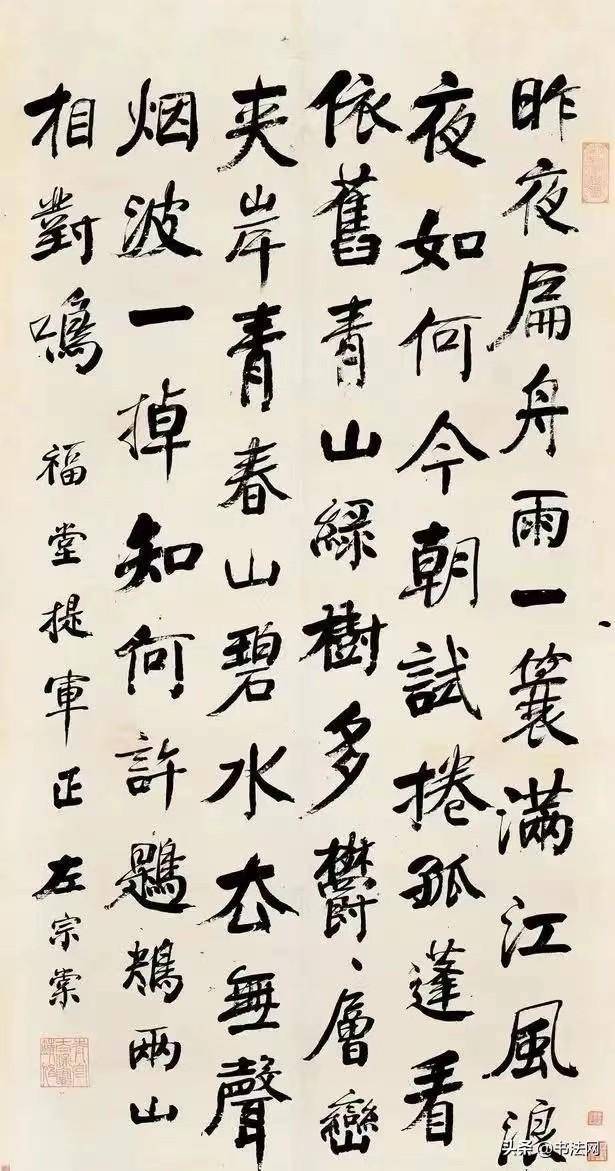 昨夜扁舟雨一簑满江風浪
夜如何今朝試捲孤蓬看
依舊青山綠樹多鬱〻層巒
夾岸青春山碧水去無聲
烟波一掉知何許鶗鴂兩山
相對鳴 福堂提軍正 左宗棠
头条@书法网